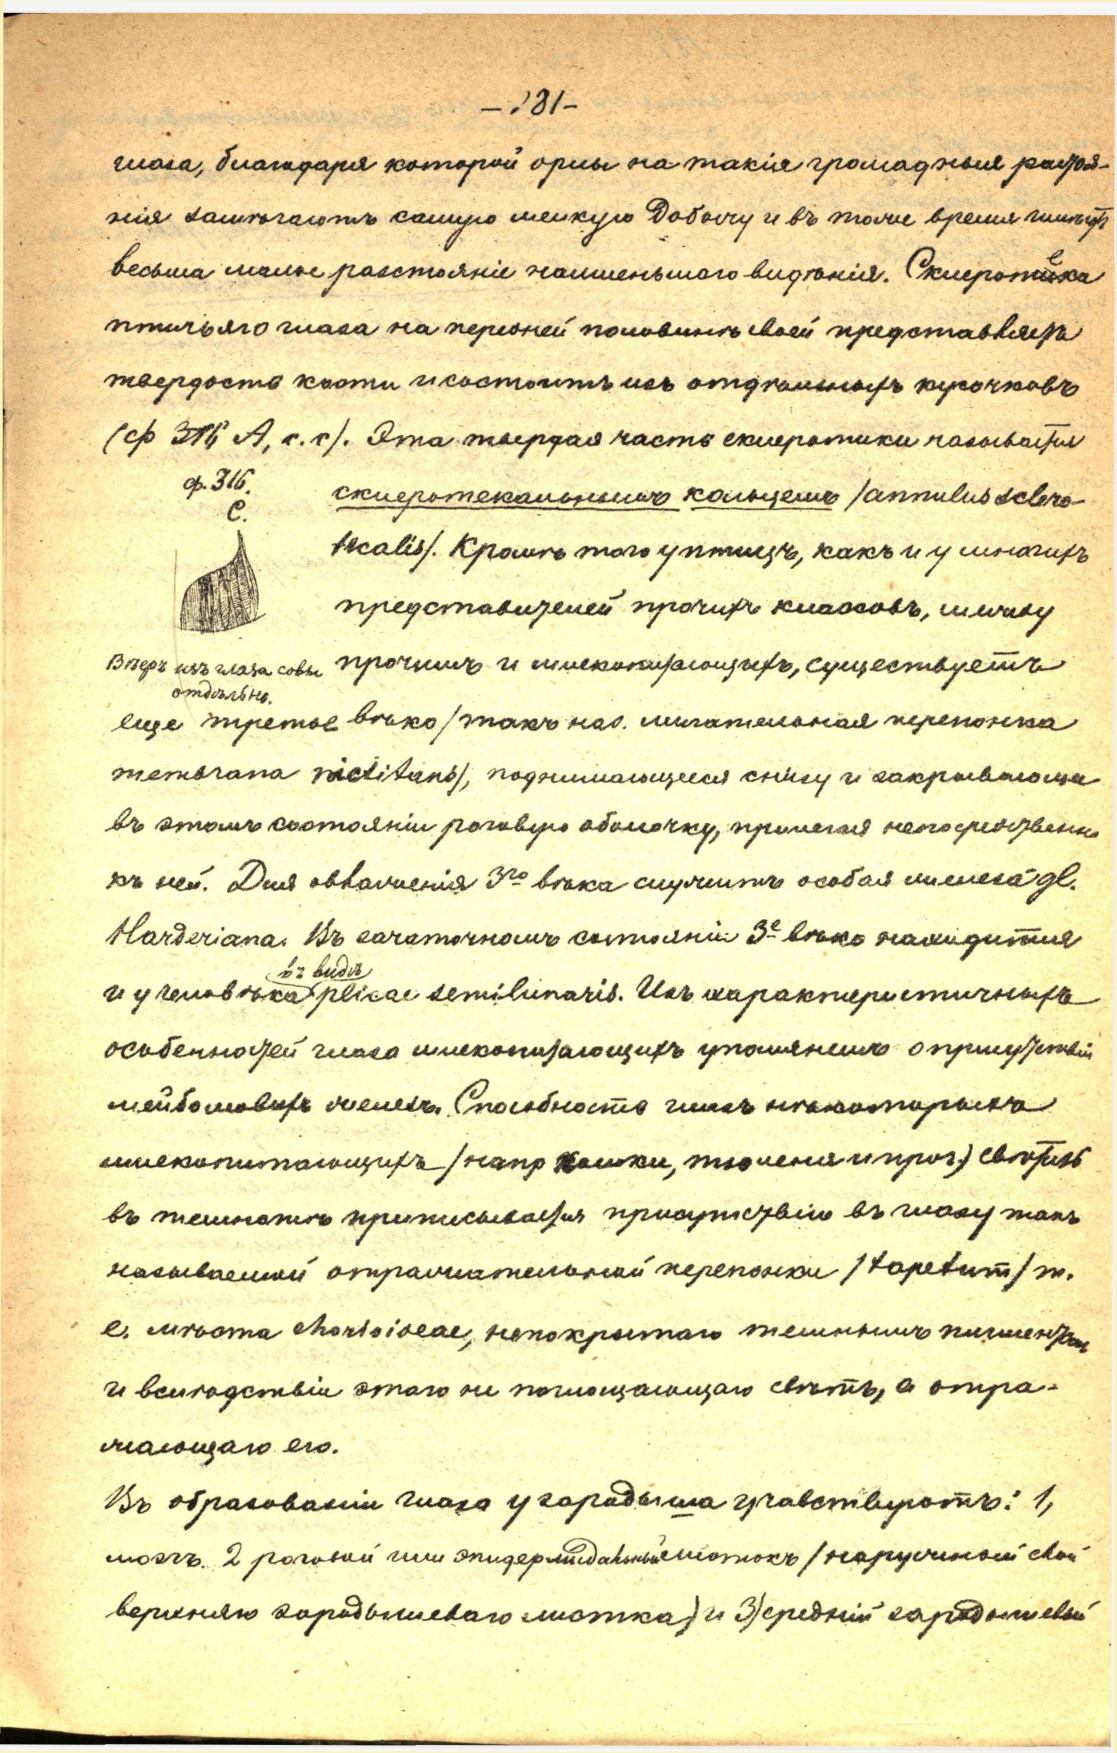 — 281 —
глаза, благодаря которой орлы на такія громадныя разстоя-
нія замѣчаютъ самую мелкую добычу и въ тоже время имѣютъ
весьма малое разстояніе наименьшаго видѣнія. Склеротека
птичьяго глаза на передней половинѣ своей представляетъ
твердость кости и состоитъ изъ отдѣльныхъ кусочковъ
(ф 316 А, с. с). Эта твердая часть склеротики называется
ф. 316.
С.
склеротекальнымъ кольцемъ /annulus sclero-
tecalis/. Кромѣ того у птицъ, какъ и у многихъ
представителей прочихъ классовъ, между
Вѣеръ изъ глаза совы
отдѣльно.
прочимъ и млекопитающихъ, существуетъ
еще третье вѣко /такъ наз. мигательная перепонка
membrana nictitans/, поднимающееся снизу и закрывающее
въ этомъ состояніи роговую оболочку, прилегая непосредственно
къ ней. Для овлаженія 3го вѣка служитъ особая железа gl.
Harderiana. Въ зачаточномъ состояніи 3е вѣко находится
и у человѣка въ видѣ plicae semilunaris. Изъ характеристичныхъ
особенностей глаза млекопитающихъ упомянемъ о присутствіи
мейбомовыхъ железъ. Способность глазъ нѣкоторыхъ
млекопитающихъ /напр кошки, тюленя и проч.) свѣтить
въ темнотѣ приписывается присутствію въ глазу такъ
называемой отражательной перепонки /tapetum/ т.
е. мѣста chorioideae, непокрытаго темнымъ пигментомъ
и вслѣдствіи этого не поглощающаго свѣтъ, а отра-
жающаго его.
Въ образованіи глаза у зародыша участвуютъ: 1,
мозгъ. 2 роговой или эпидермидальный листокъ /наружный слой
верхняго зародышеваго листка) и 3) средній зародышевый